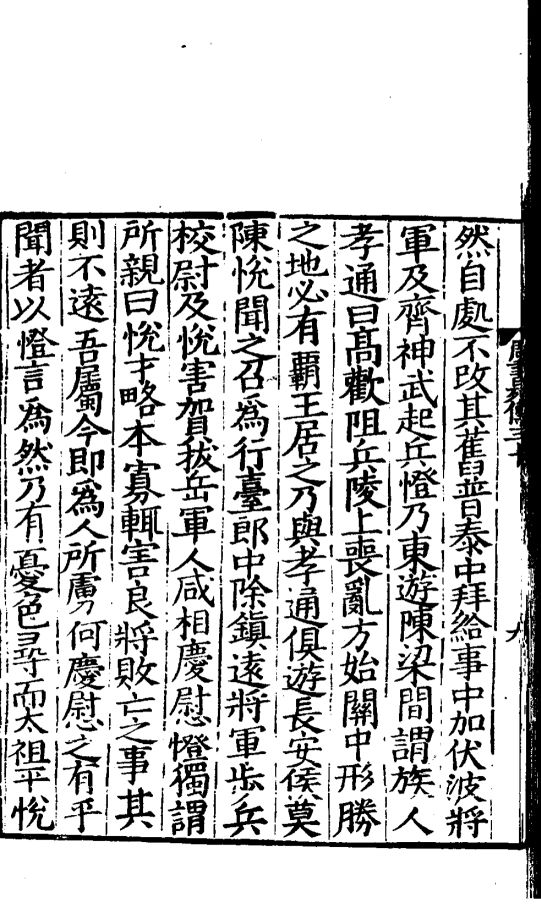 然自處不改其舊普泰中拜給事中加伏波將
軍及齊神武起兵憕乃東遊陳梁間謂族人
孝通曰高歡阻兵陵上喪亂方始關中形勝
之地必有霸王居之乃與孝通俱遊長安侯莫
陳悅聞之召爲行臺郎中除鎮遠將軍步兵
校尉及悅害賀拔岳軍人咸相慶慰憕獨謂
所親曰悅才略本寡輒害良將敗亡之事其
則不遠吾屬今即爲人所虜何慶慰之有乎
聞者以憕言爲然乃有憂色尋而太祖平悅